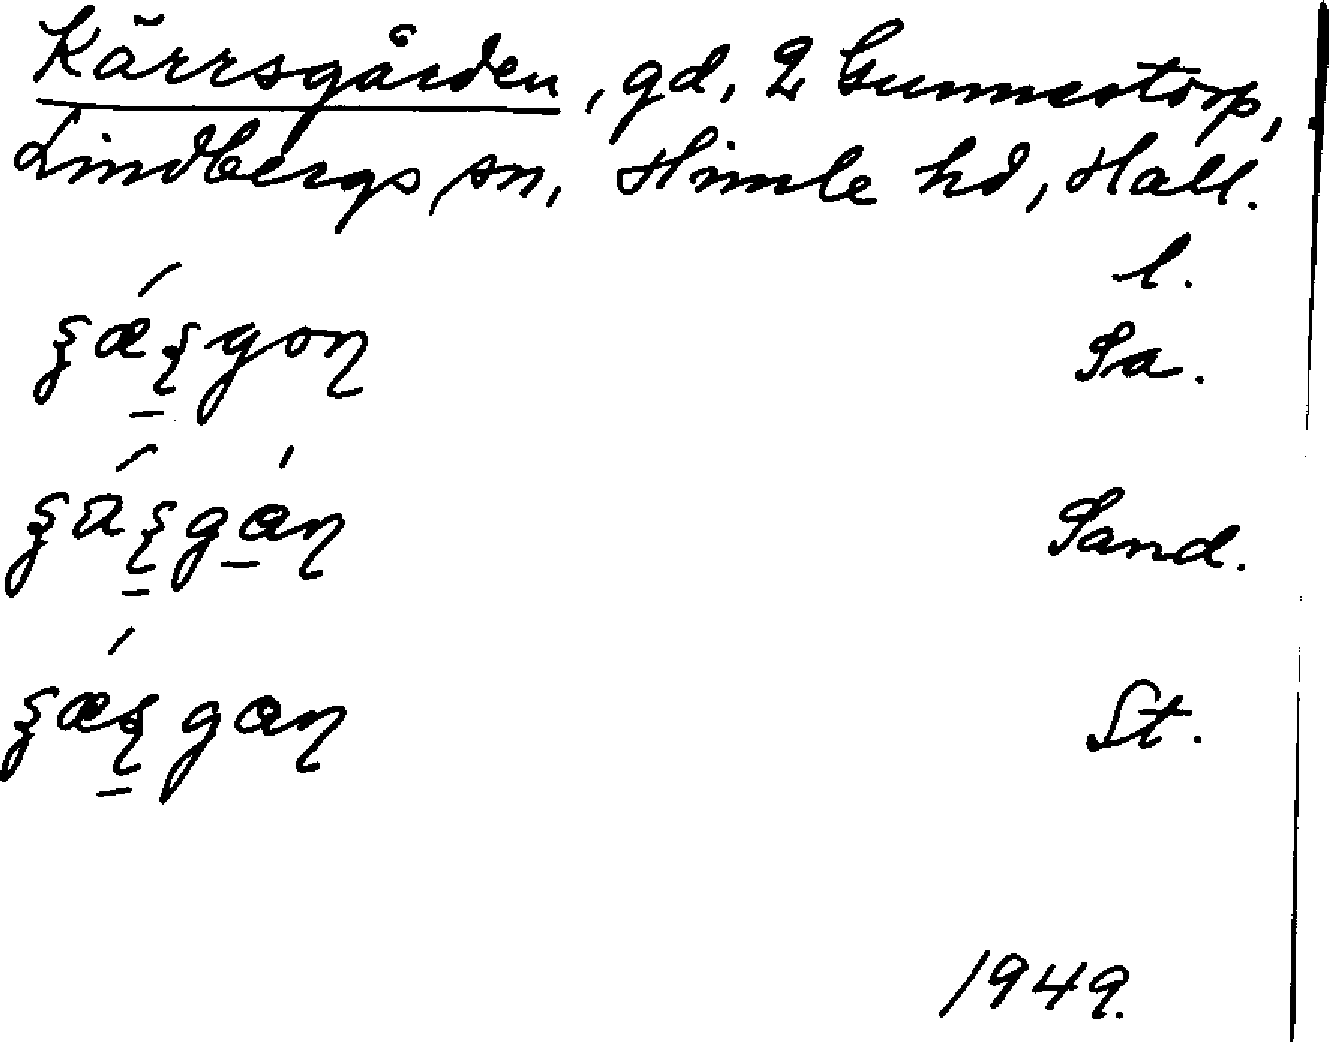 Kärrsgården, gd, 2 Gunnestorp,
Lindbergs sn, Himle hd, Hall.
l.
Sa.
Sand.
St.
1949.